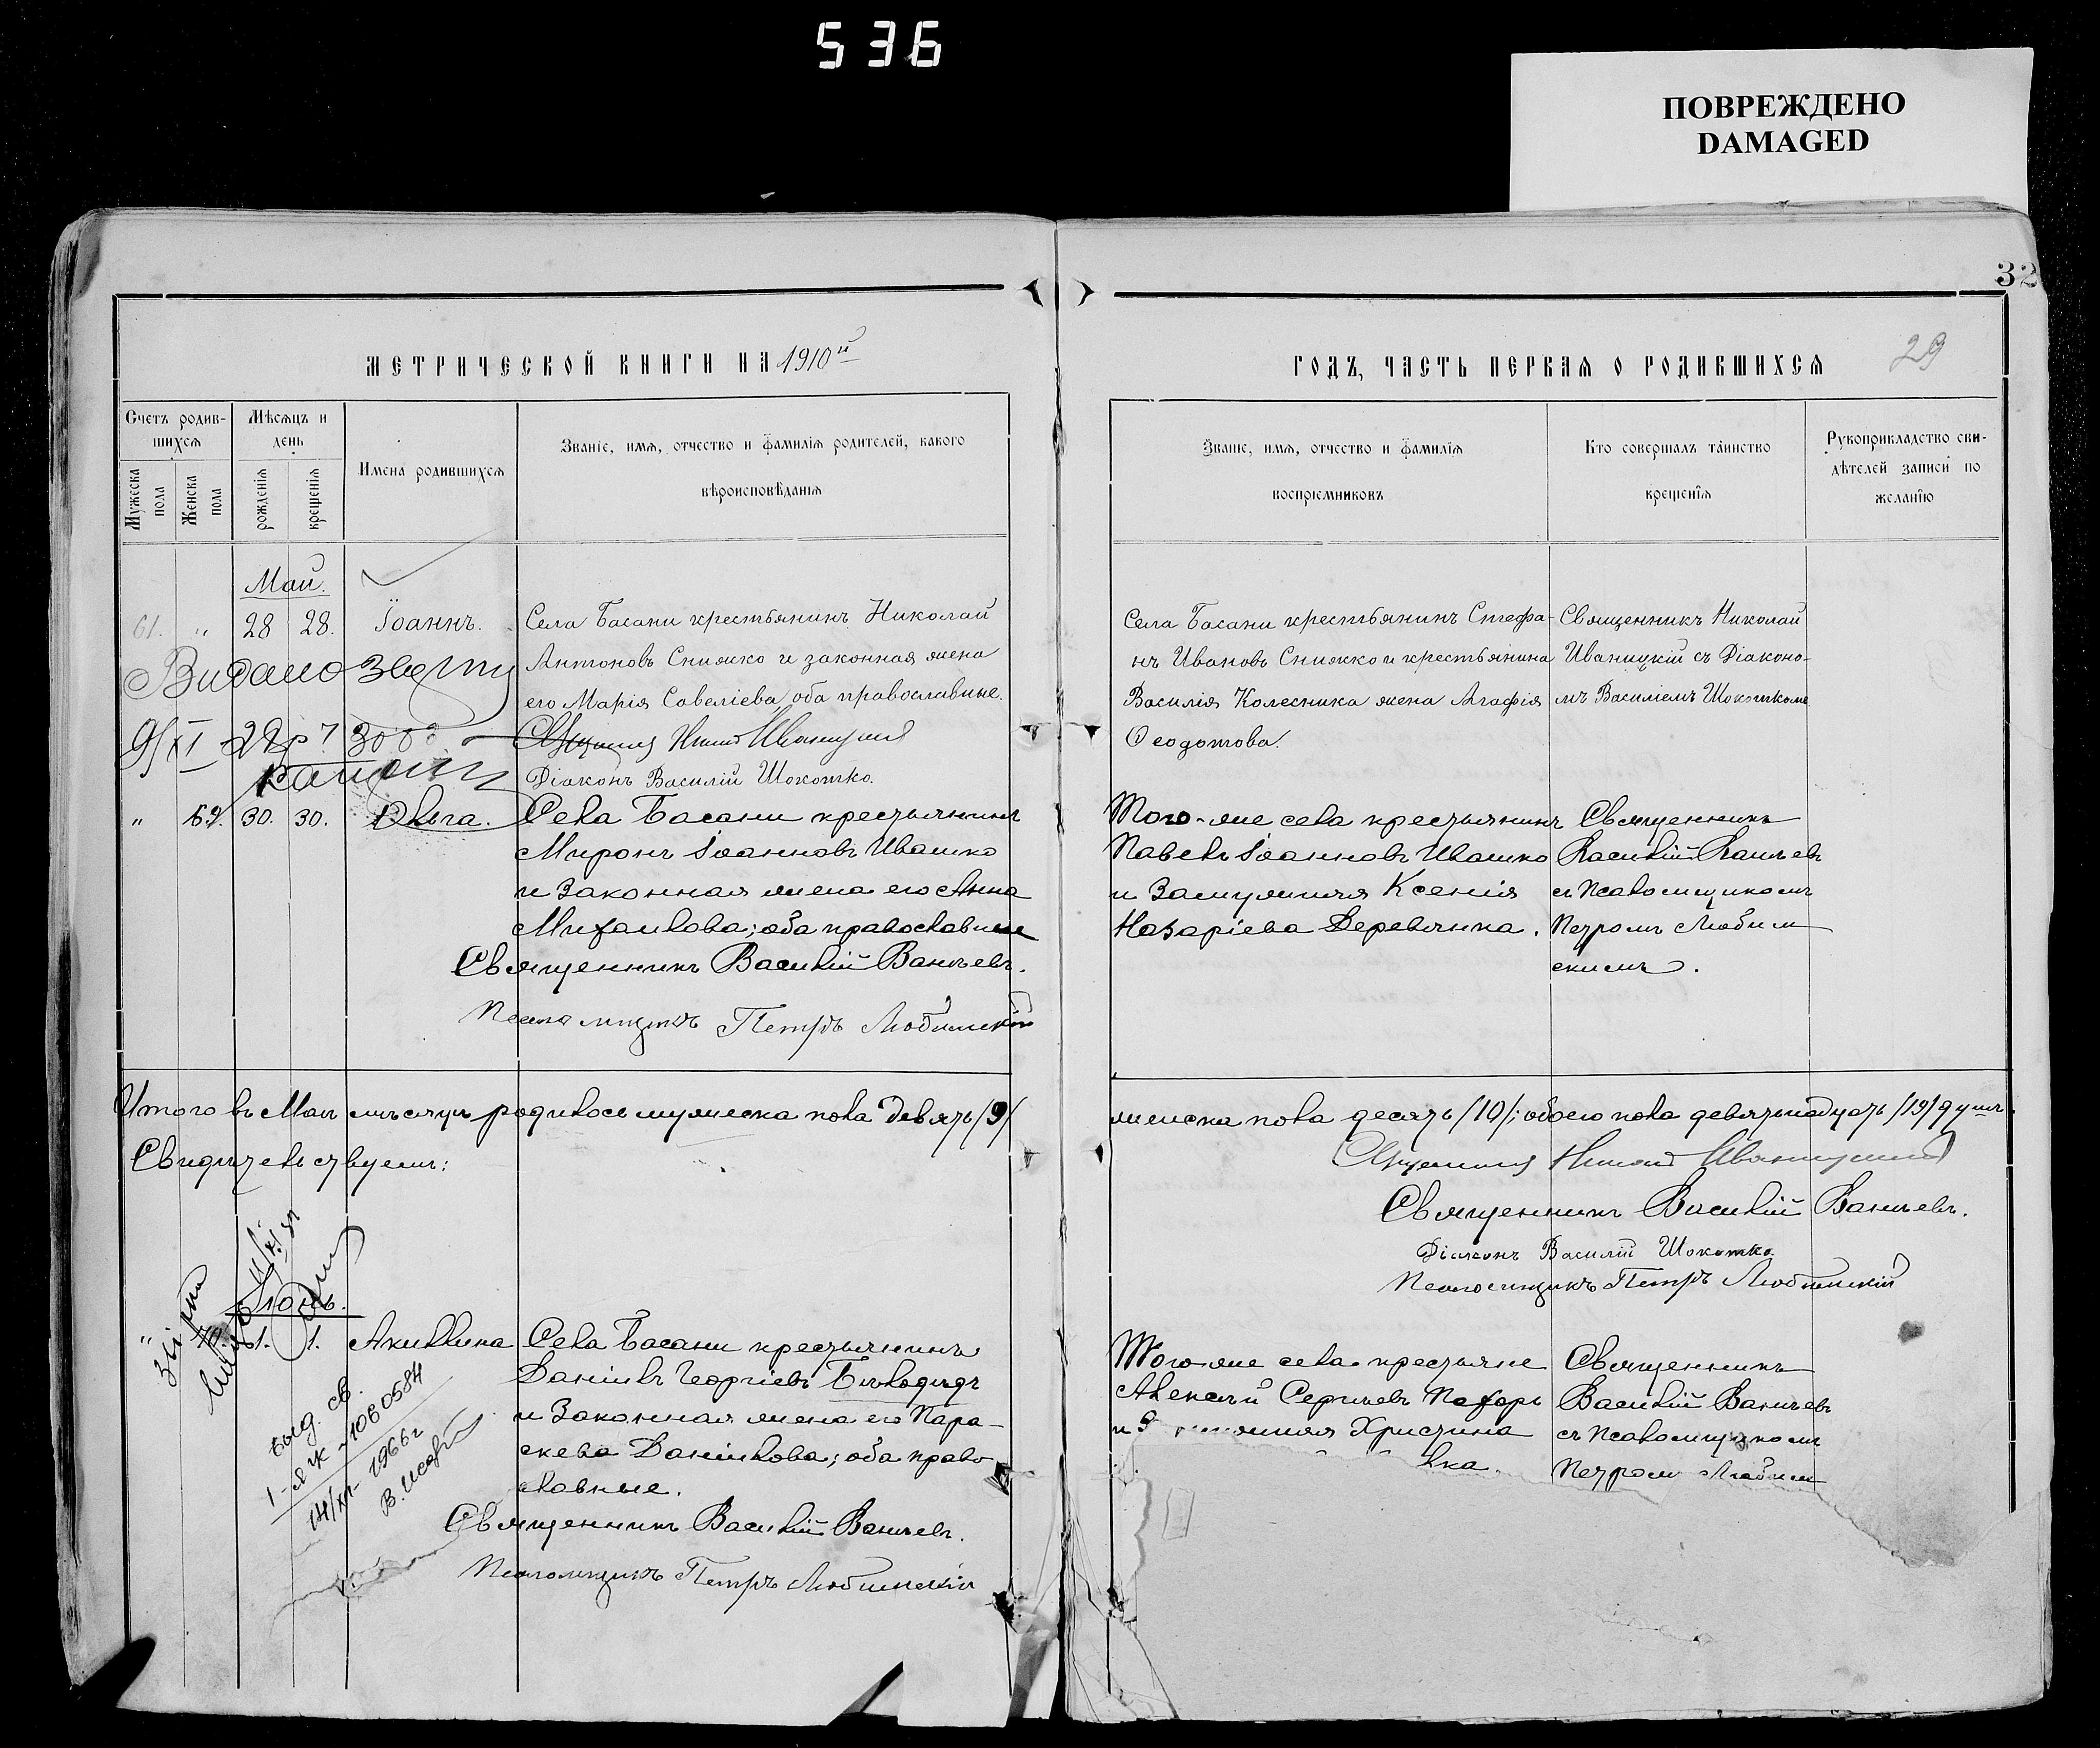 536
ПОВРЕЖДЕНО
DAMAGED
32
МЕТРИЧЕСКОЙ КНИГИ НА 1910й
ГОДЪ, ЧАСТЬ ПЕРВАЯ О РОДИВШИХСЯ
29
Счетъ родив-
шихся
Мужеска пола
Женска пола
Мѣсяцъ и
день
рожденія
крещенія
Имена родившихся
Званіе, имя, отчество и фамилія родителей, какого
вѣроисповѣданія
Званіе, имя, отчество и фамилія
воспріемниковъ
Кто совершалъ таинство
крещенія
Рукоприкладство сви-
дѣтелей записи по
желанію
Май.
61. " 28 28. Іоаннъ.
Села Басани крестьянинъ Николай
Антоновъ Снижко и законная жена
его Марія Савеліева, оба православные.
Священникъ Николай Иваницкій
Діаконъ Василій Шокотко.
Села Басани крестьянинъ Стефа-
нъ Ивановъ Снижко и крестьянина
Василія Колесника жена Агафія
Ѳеодотова.
Священникъ Николай
Иваницкій съ Діаконо-
мъ Василіемъ Шокоткомъ
Видано
9/XI - 28р
" 69. 30. 30. Ольга.
Села Басани крестьянинъ
Миронъ Іоанновъ Ивашко
и законная жена его Анна
Михаилова; оба православные
Священникъ Василій Ваньевъ.
Псаломщикъ Петръ Любимскій
Того-же села крестьянинъ
Павелъ Іоанновъ Ивашко
и Замужняя Ксенія
Назаріева Деревянка.
Священникъ
Василій Ваньевъ
съ Псаломщикомъ
Петромъ Любим
скимъ.
Итого въ Маѣ мѣсяцѣ родилось мужеска пола девять /9/
женска пола десять /10/; обоего пола девятнадцать /19/ душъ.
Свидѣтельствуемъ:
Священникъ Николай Иваницкій
Священникъ Василій Ваньевъ.
Діаконъ Василій Шокотко.
Псаломщикъ Петръ Любимскій
Іюнь.
" 70. 1. 1. Акилина
Села Басани крестьянинъ
Даніилъ Георгіевъ Бѣлодѣдъ
и Законная жена его Пара-
скева Даніилова; оба право
славные.
Священникъ Василій Ваньевъ.
Псаломщикъ Петръ Любимскій
Того-же села крестьяне
Алексѣй Сергѣевъ
Христина
Священникъ
Василій Ваньевъ
съ Псаломщикомъ
Петромъ Любим
выд. св.
1-ЯЖ-1060584
14/XI- 1966г